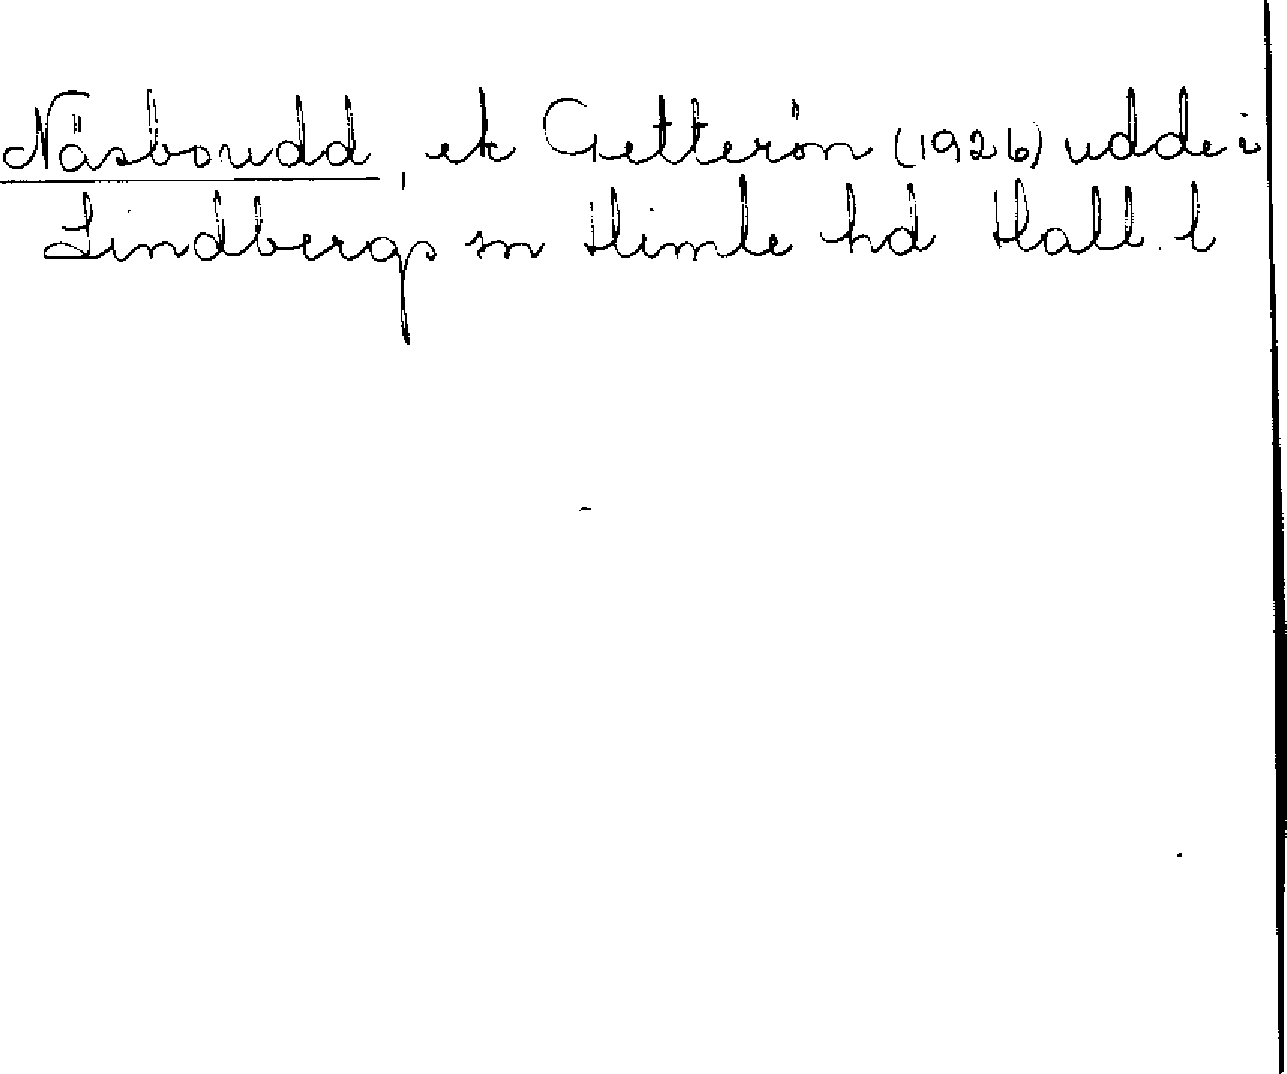 Näsboudd, ek Getterön (1926) udde i
Lindbergs sn Himle hd Hall. l